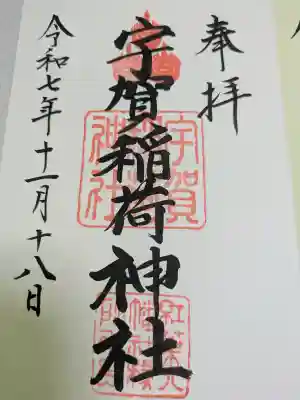 奉拝
宇賀稲荷神社
令和七年十一月十八日
宇賀
神社